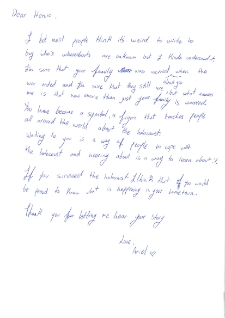 Dear Henio
I bet most people think it's weird to write to
boy who's whereabouts are unknown but I think
I'm sure that your family was worried when the
war ended and I'm sure that they still are but what
me is that now more than just your family is worried
You have become a symbol, a figure that teaches people
all around the world about the holocaust
Writing to you is a way of people to cope with
the holocaust and hearing about is a way to learn about it,
If you survived the holocaust I think that you would
be proud to know what is happening in your hometown.
Thank you for letting me hear your story
Love,